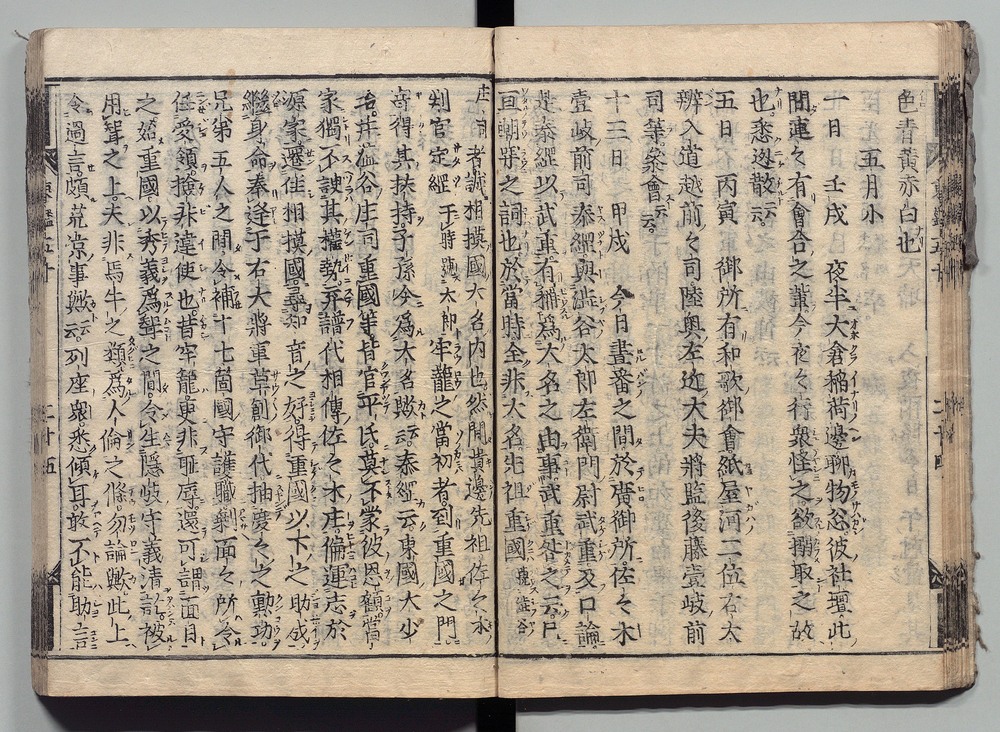 色青黄赤白也
五月小
一日 壬戌 夜半大倉稲荷邊聊物忩彼社壇此
間連々有會合之輩今夜々行衆怪之欲搦取之故
也悉迯散云々
五日 丙寅 御所有和歌御會紙屋河二位右大
辨入道越前々司陸奥左近大夫將監後藤壹岐前
司等衆會云々
十三日 甲戌 今日晝番之間於廣御所佐々木
壹岐前司泰綱與澁谷太郎左衛門尉武重及口論
是泰綱以武重有稱爲大名之由事武重咎之云尸
亘嘲哢之詞也於當時全非大名先祖重國
庄司者誠相摸國大名内也然間貴邊先祖佐々木
判官定綱于時號太郎牢籠之當初者到重國之門
寄得其扶持子孫今爲大名歟云々泰綱云東國大少
名并澁谷庄司重國等皆官平氏莫不蒙彼恩顧當
家獨不諛其權勢弃譜代相傳佐々木庄偏運志於
源家遷住相摸國尋知音之好得重國以下之助成
繼身命奉逢于右大將軍草創御代抽度々之勲功
兄弟五人之間令補十七箇國守護職剰面々所令
任受領撿非違使也昔牢籠更非耻辱還可謂面目
之始重國以秀義爲聟之間令生隱岐守義清訖被
用聟之上夫非馬牛之類爲人倫之條勿論歟此上
令過言頗荒凉事歟云々列座衆悉傾耳敢不能助言
東鑑五十
二十四
東鑑五十
二十五